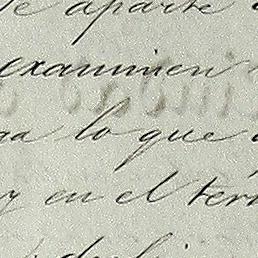 de aparte
examinen
lo que
y en el tér